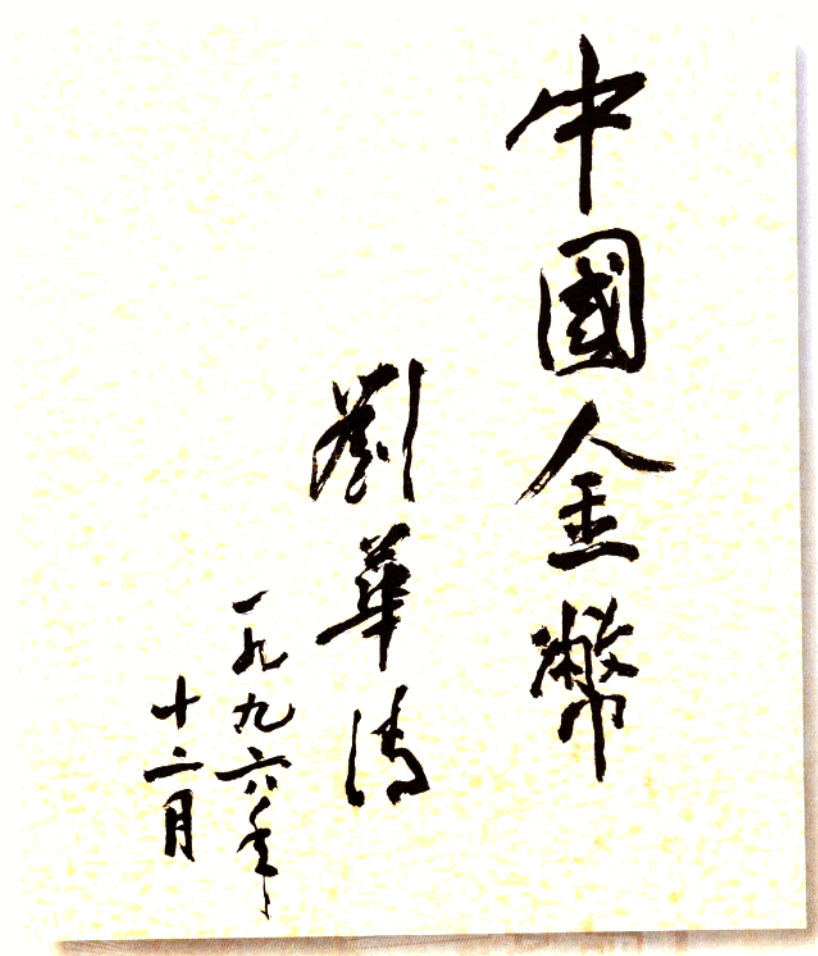 中國金幣
劉華清
一九九六年
十二月